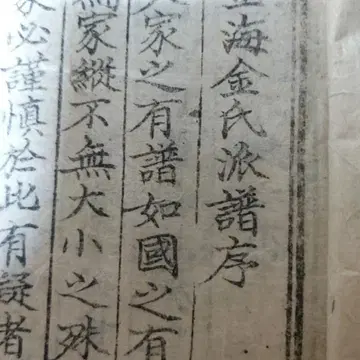 海金氏派譜序
家之有譜如國之有
家縱不無大小之殊
必謹慎於此有疑者